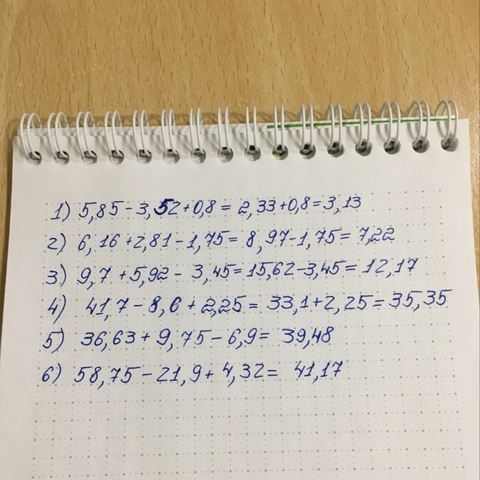 1) 5,85-3,52+0,8=2,33+0,8=3,13
2) 6,16+2,81-1,75=8,97-1,75=7,22
3) 9,7+5,92-3,45=15,62-3,45=12,17
4) 41,7-8,6+2,25=33,1+2,25=35,35
5) 36,63+9,75-6,9=39,48
6) 58,75-21,9+4,32=41,17